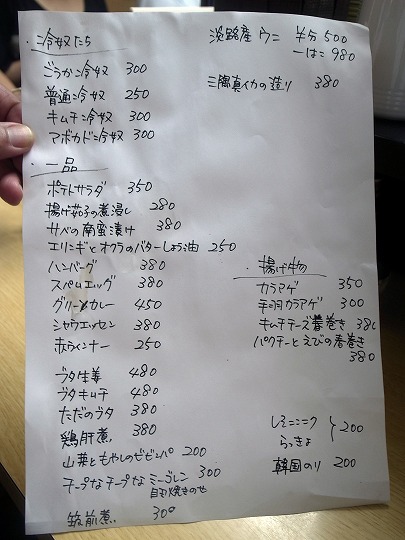 ・冷奴たち
ごうか冷奴 300
普通冷奴 250
キムチ冷奴 300
アボカド冷奴 300
・一品
ポテトサラダ 350
揚げ茄子の煮浸し 280
サバの南蛮漬け 380
エリンギとオクラのバターしょう油 250
ハンバーグ 380
スパムエッグ 380
グリーンカレー 450
シャウエッセン 380
赤ウインナー 250
ブタ生姜 480
ブタキムチ 480
ただのブタ 380
鶏肝煮 380
山菜ともやしのビビンバ 200
チープなチープなミーゴレン 300
目玉焼きのせ
筑前煮 300
淡路産ウニ ¥分 500
一はこ 980
三陸真イカの造り 380
・揚げ物
カラアゲ 350
手羽カラアゲ 300
キムチチーズ春巻き 380
パクチーとえびの春巻き
380
しろニンニク
らっきょ 200
韓国のり 200